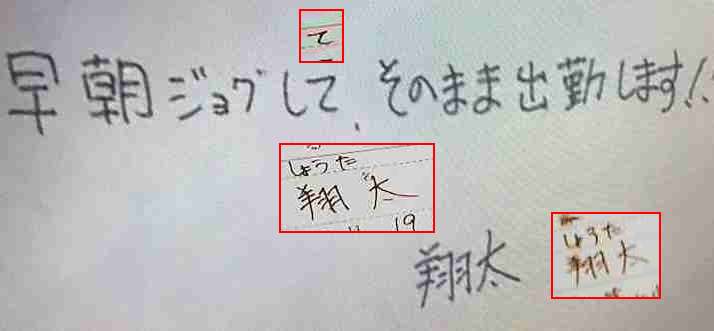 て
早朝ジョグして、そのまま出勤します!!
しょうた
翔太
19
翔太
しょうた
翔太